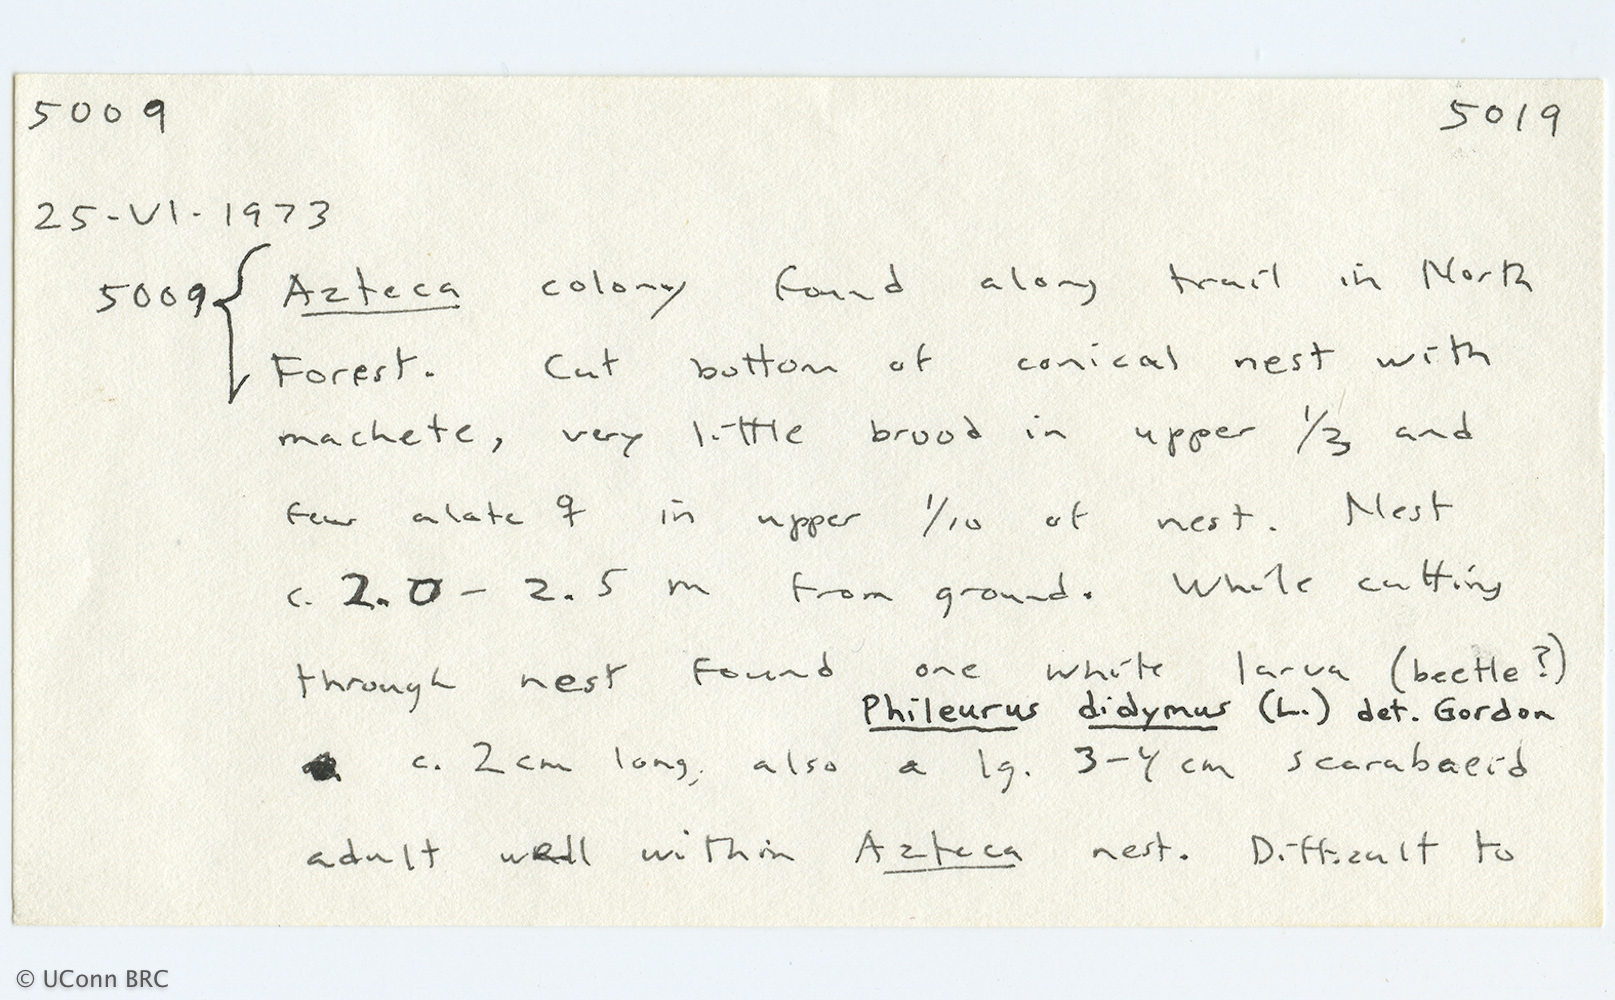 5009 5019
25-VI-1973
5009 { Azteca colony found along trail in North
Forest. Cut bottom of conical nest with
machete, very little brood in upper 1/3 and
few alate ♀ in upper 1/10 of nest. Nest
c. 2.0 - 2.5 m from ground. While cutting
through nest found one white larva (beetle?)
Phileurus didymus (L.) det. Gordon
c. 2 cm long, also a lg. 3-4 cm scarabaeid
adult well within Azteca nest. Difficult to
© UConn BRC